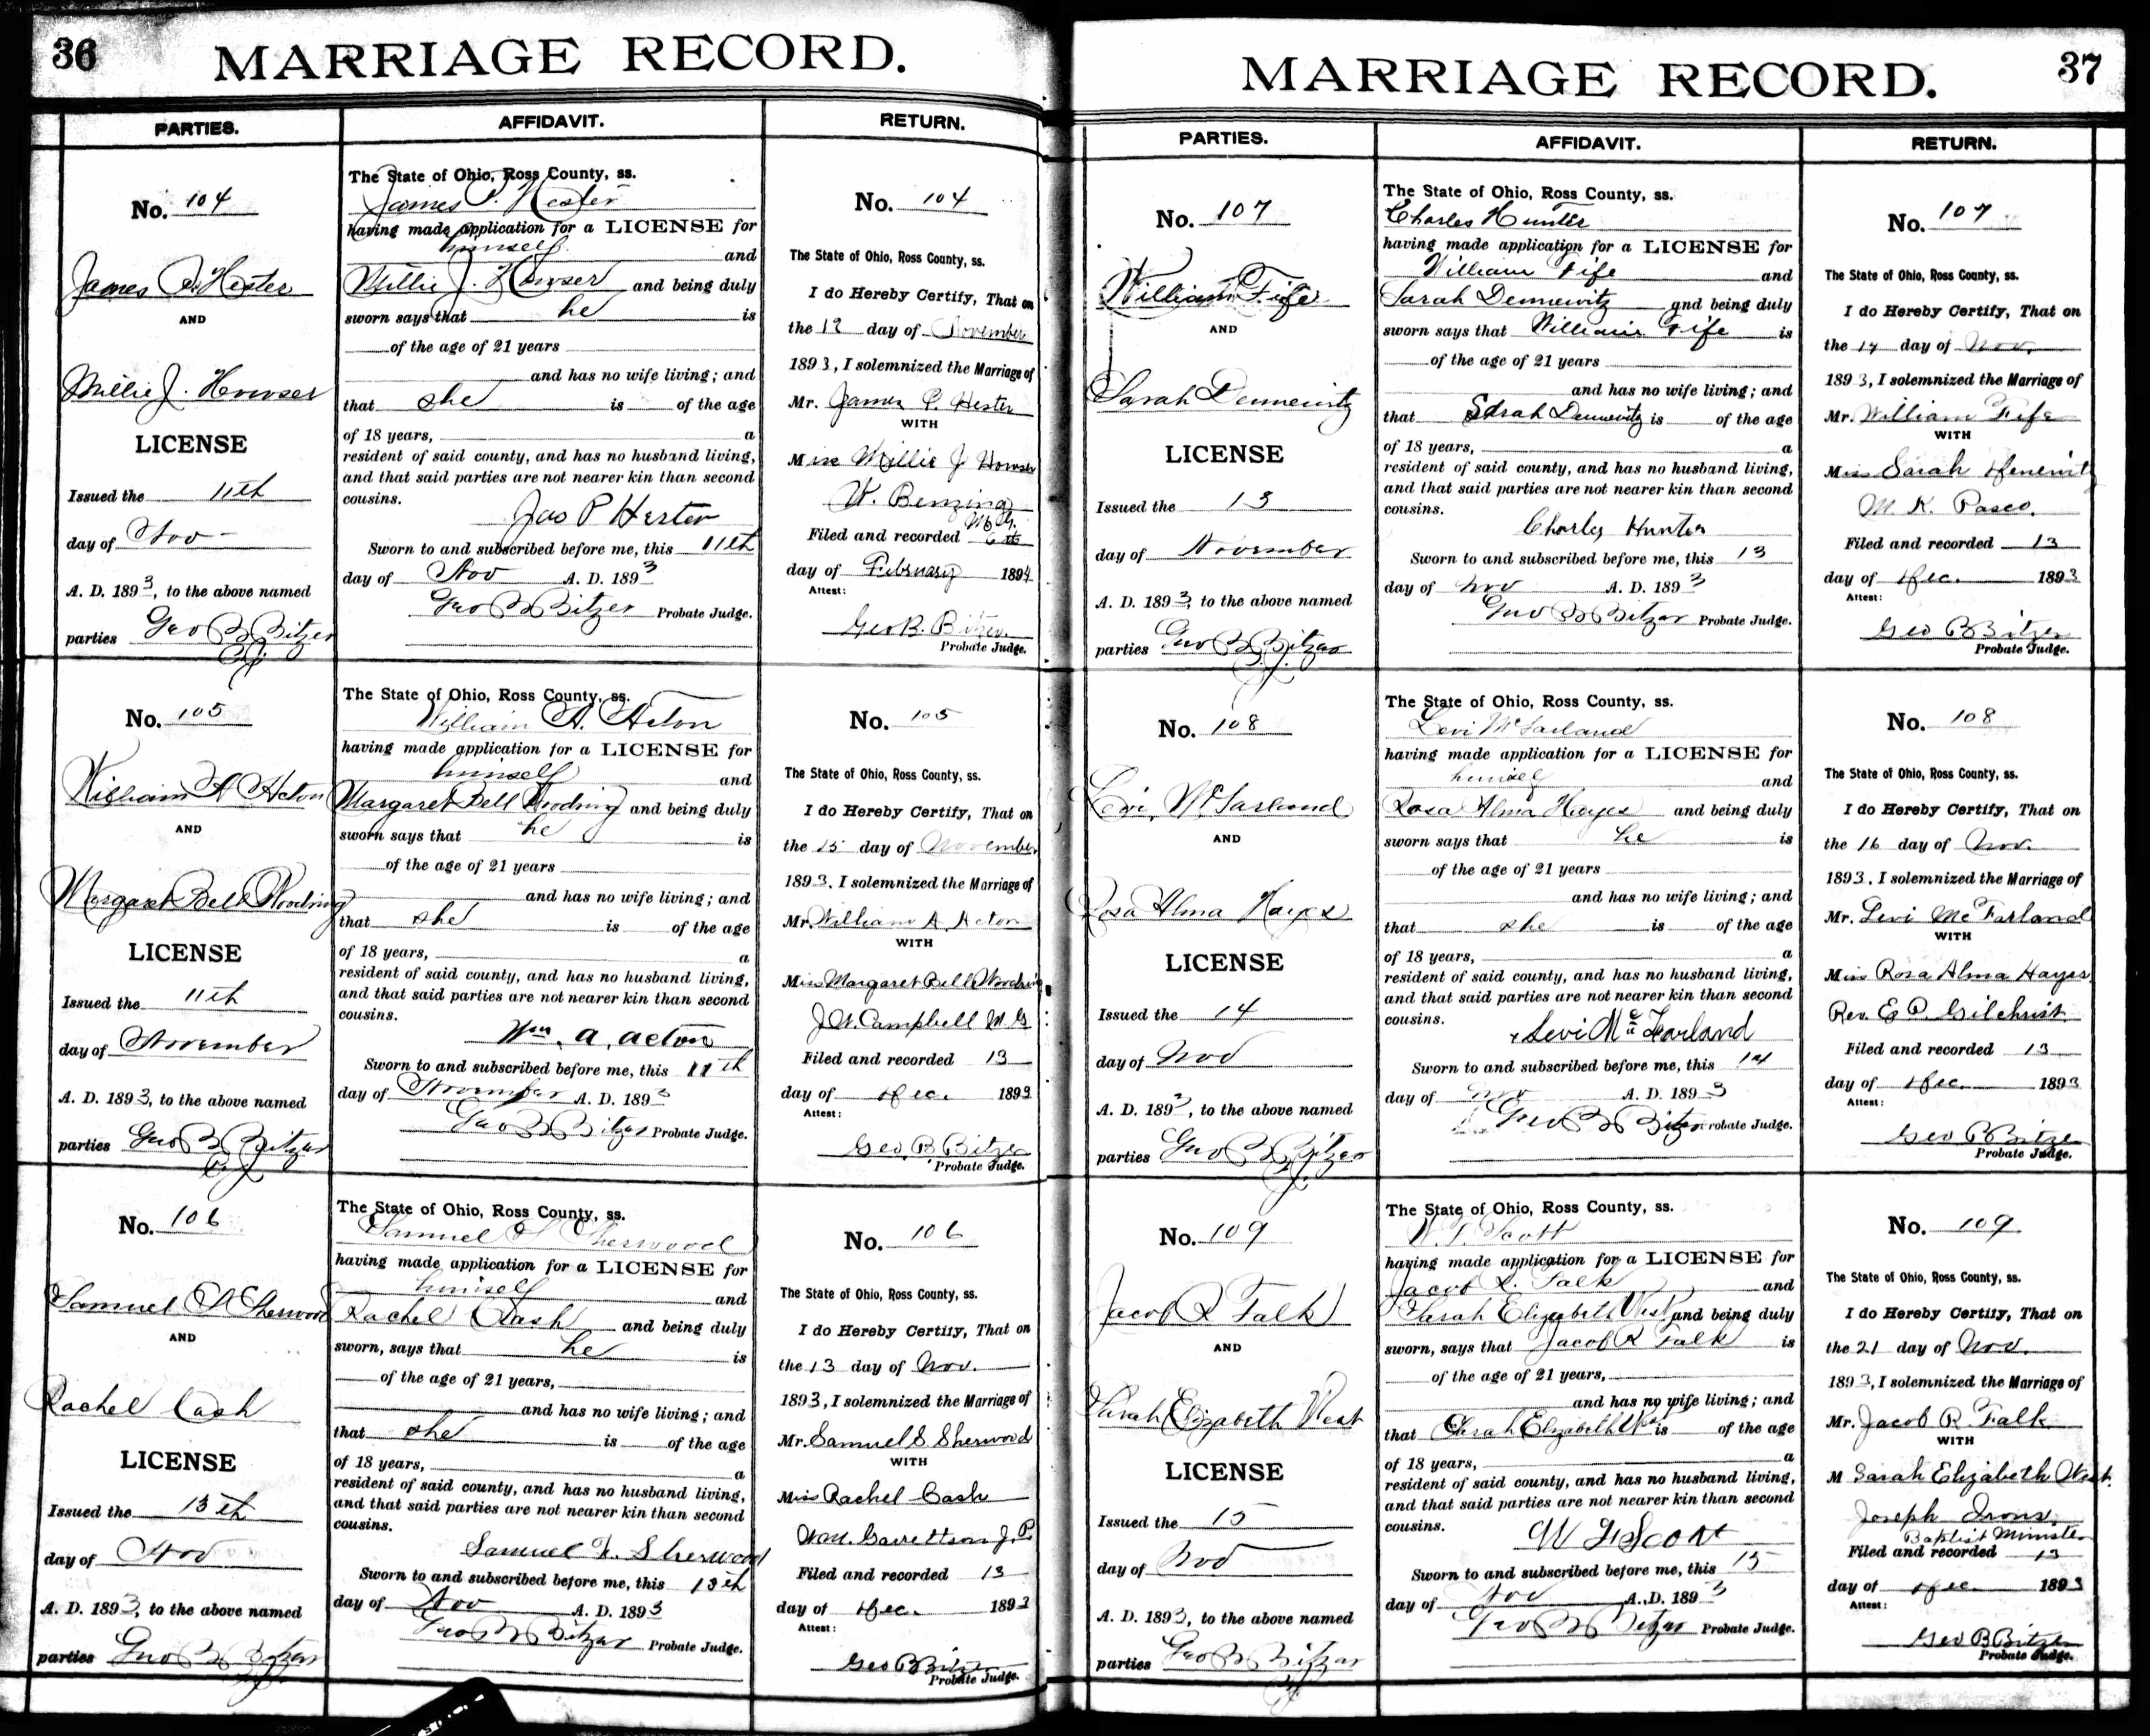 36
MARRIAGE RECORD.
PARTIES.
AFFIDAVIT.
RETURN.
No. 104
James P. Hester
AND
Millie J. Howser
LICENSE
Issued the 11th
day of Nov
A. D. 1893, to the above named
parties Geo B Bitzer
P.J.
The State of Ohio, Ross County, ss.
James P. Hester
having made application for a LICENSE for
himself and
Millie J. Howser and being duly
sworn says that he is
of the age of 21 years
and has no wife living; and
that she is of the age
of 18 years, a
resident of said county, and has no husband living,
and that said parties are not nearer kin than second
cousins.
Jas P Hester
Sworn to and subscribed before me, this 11th
day of Nov A. D. 1893
Geo B Bitzer Probate Judge.
No. 104
The State of Ohio, Ross County, ss.
I do Hereby Certify, That on
the 12 day of November
1893, I solemnized the Marriage of
Mr. James P. Hester
WITH
Miss Millie J Howser
W. Benzing
M.G.
Filed and recorded 6th
day of February 1894
Attest:
Geo B. Bitzer
Probate Judge.
No. 105
William A Acton
AND
Margaret Bell Woodring
LICENSE
Issued the 11th
day of November
A. D. 1893, to the above named
parties Geo B Bitzer
P.J.
The State of Ohio, Ross County, ss.
William A. Acton
having made application for a LICENSE for
himself and
Margaret Bell Woodring and being duly
sworn says that he is
of the age of 21 years
and has no wife living; and
that she is of the age
of 18 years, a
resident of said county, and has no husband living,
and that said parties are not nearer kin than second
cousins.
Wm. a. acton
Sworn to and subscribed before me, this 11th
day of November A. D. 1893
Geo B Bitzer Probate Judge.
No. 105
The State of Ohio, Ross County, ss.
I do Hereby Certify, That on
the 15 day of November
1893, I solemnized the Marriage of
Mr. William A. Acton
WITH
Miss Margaret Bell Woodring
J. W. Campbell M. G
Filed and recorded 13
day of Dec. 1893
Attest:
Geo. B Bitzer
Probate Judge.
No. 106
Samuel S Sherwood
AND
Rachel Cash
LICENSE
Issued the 13th
day of Nov
A. D. 1893, to the above named
parties Geo B Bitzer
The State of Ohio, Ross County, ss.
Samuel S Sherwood
having made application for a LICENSE for
himself and
Rachel Cash and being duly
sworn, says that he is
of the age of 21 years,
and has no wife living; and
that she is of the age
of 18 years, a
resident of said county, and has no husband living,
and that said parties are not nearer kin than second
cousins.
Samuel Sherwood
Sworn to and subscribed before me, this 13th
day of Nov A. D. 1893
Geo B Bitzer Probate Judge.
No. 106
The State of Ohio, Ross County, ss.
I do Hereby Certify, That on
the 13 day of Nov.
1893, I solemnized the Marriage of
Mr. Samuel S Sherwood
WITH
Miss Rachel Cash
Wm. Garrettson J. P.
Filed and recorded 13
day of Dec. 1893
Attest:
Geo B Bitzer
Probate Judge.
37
MARRIAGE RECORD.
PARTIES.
AFFIDAVIT.
RETURN.
No. 107
William Fife
AND
Sarah Dennewitz
LICENSE
Issued the 13
day of November
A. D. 1893, to the above named
parties Geo B Bitzer
P.J.
The State of Ohio, Ross County, ss.
Charles Hunter
having made application for a LICENSE for
William Fife and
Sarah Dennewitz and being duly
sworn says that William Fife is
of the age of 21 years
and has no wife living; and
that Sarah Dennewitz is of the age
of 18 years, a
resident of said county, and has no husband living,
and that said parties are not nearer kin than second
cousins.
Charley Hunter
Sworn to and subscribed before me, this 13
day of Nov A. D. 1893
Geo B Bitzer Probate Judge.
No. 107
The State of Ohio, Ross County, ss.
I do Hereby Certify, That on
the 14 day of Nov.
1893, I solemnized the Marriage of
Mr. William Fife
WITH
Miss Sarah
M. K. Pasco.
Filed and recorded 13
day of Dec. 1893
Attest:
Geo B Bitzer
Probate Judge.
No. 108
Levi McFarland
AND
Rosa Alma Hayes
LICENSE
Issued the 14
day of Nov
A. D. 1893, to the above named
parties Geo B Bitzer
P.J.
The State of Ohio, Ross County, ss.
Levi McFarland
having made application for a LICENSE for
himself and
Rosa Alma Hayes and being duly
sworn says that he is
of the age of 21 years
and has no wife living; and
that she is of the age
of 18 years, a
resident of said county, and has no husband living,
and that said parties are not nearer kin than second
cousins.
Levi McFarland
Sworn to and subscribed before me, this 14
day of Nov A. D. 1893
Geo B Bitzer Probate Judge.
No. 108
The State of Ohio, Ross County, ss.
I do Hereby Certify, That on
the 16 day of Nov.
1893, I solemnized the Marriage of
Mr. Levi McFarland
WITH
Miss Rosa Alma Hayes
Rev. E. P. Gilchrist.
Filed and recorded 13
day of Dec. 1893
Attest:
Geo B Bitzer
Probate Judge.
No. 109
Jacob R Falk
AND
Sarah Elizabeth West
LICENSE
Issued the 15
day of Nov
A. D. 1893, to the above named
parties Geo B Bitzer
The State of Ohio, Ross County, ss.
W. F. Scott
having made application for a LICENSE for
Jacob R. Falk and
Sarah Elizabeth West and being duly
sworn, says that Jacob R Falk is
of the age of 21 years,
and has no wife living; and
that Sarah Elizabeth West is of the age
of 18 years, a
resident of said county, and has no husband living,
and that said parties are not nearer kin than second
cousins.
W F Scott
Sworn to and subscribed before me, this 15
day of Nov A. D. 1893
Geo B Bitzer Probate Judge.
No. 109
The State of Ohio, Ross County, ss.
I do Hereby Certify, That on
the 21 day of Nov.
1893, I solemnized the Marriage of
Mr. Jacob R. Falk
WITH
M Sarah Elizabeth West.
Joseph Irons.
Baptist Minister
Filed and recorded 13
day of Dec. 1893
Attest:
Geo B Bitzer
Probate Judge.